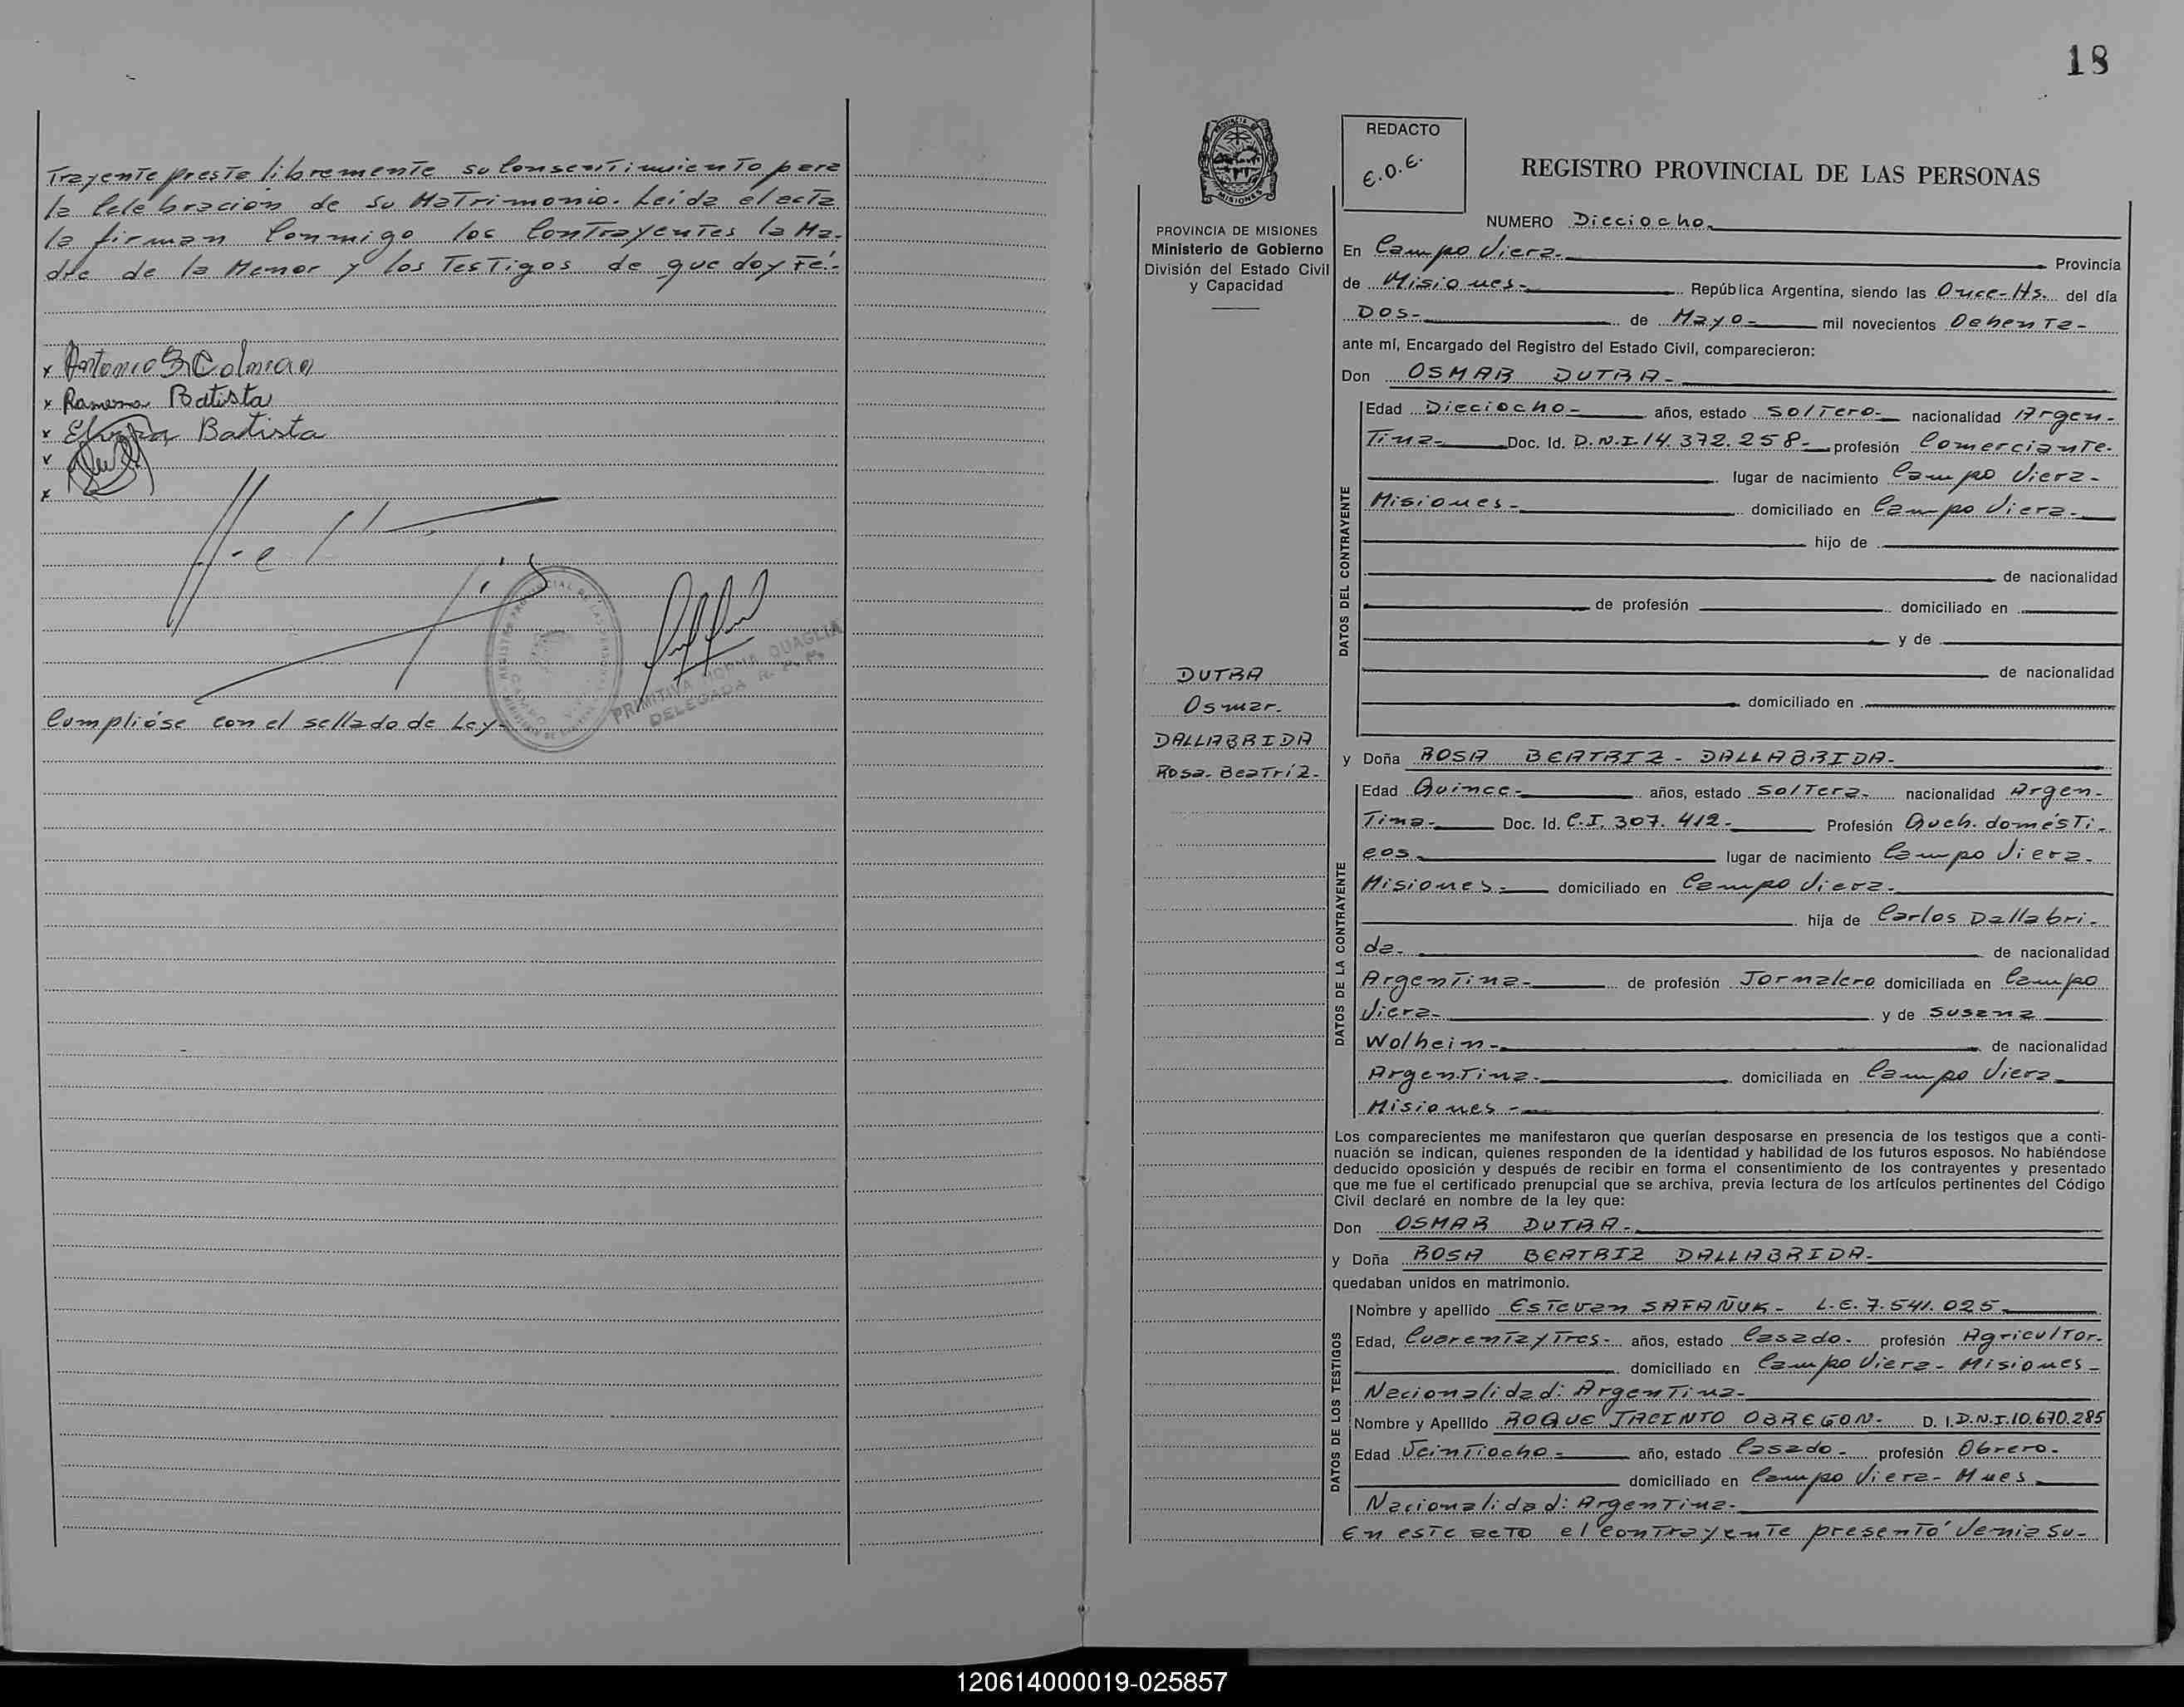 Trayente presta libremente su Consentimiento para
la Celebración de su Matrimonio. Leída el acta
la firman Conmigo los Contrayentes la Ma-
dre de la Menor y los Testigos de que doy Fé.-
x Antonio
x Ramona Batista
x Batista
x
x
REGISTRO PROVINCIAL DE LAS PERSONAS
PRIMITIVA NORMA QUAGLIA
DELEGADA R. P. P.
Cumplióse con el sellado de Ley-
18
PROVINCIA DE MISIONES
Ministerio de Gobierno
División del Estado Civil
y Capacidad
DUTRA
Osmar.
DALLABRIDA
Rosa. Beatríz.-
REDACTO
E.O.E.
REGISTRO PROVINCIAL DE LAS PERSONAS
NUMERO Dieciocho.
En Campo Viera.- Provincia
de Misiones.- República Argentina, siendo las Once-Hs. del día
Dos- de Mayo- mil novecientos Ochenta-
ante mí, Encargado del Registro del Estado Civil, comparecieron:
Don OSMAR DUTRA-
DATOS DEL CONTRAYENTE
Edad Dieciocho- años, estado Soltero- nacionalidad Argen-
tina- Doc. Id. D.N.I. 14.372.258- profesión Comerciante.
lugar de nacimiento Campo Viera-
Misiones- domiciliado en Campo Viera-
hijo de
de nacionalidad
de profesión domiciliado en
y de
de nacionalidad
domiciliado en
y Doña ROSA BEATRIZ - DALLABRIDA-
DATOS DE LA CONTRAYENTE
Edad Quince- años, estado Soltera- nacionalidad Argen-
tina- Doc. Id. C.I. 307.412- Profesión Queh. domésti-
cos- lugar de nacimiento Campo Viera-
Misiones- domiciliado en Campo Viera-
hija de Carlos Dallabri-
da- de nacionalidad
Argentina- de profesión Jornalero domiciliada en Campo
Viera- y de Susana
Wolhein- de nacionalidad
Argentina- domiciliada en Campo Viera
Misiones-
Los comparecientes me manifestaron que querían desposarse en presencia de los testigos que a conti-
nuación se indican, quienes responden de la identidad y habilidad de los futuros esposos. No habiéndose
deducido oposición y después de recibir en forma el consentimiento de los contrayentes y presentado
que me fue el certificado prenupcial que se archiva, previa lectura de los artículos pertinentes del Código
Civil declaré en nombre de la ley que:
Don OSMAR DUTRA-
y Doña ROSA BEATRIZ DALLABRIDA-
quedaban unidos en matrimonio.
DATOS DE LOS TESTIGOS
Nombre y apellido Estevan SAFAÑUK- L.E. 7.541.025
Edad, Cuarenta y Tres- años, estado Casado- profesión Agricultor-
domiciliado en Campo Viera- Misiones-
Nacionalidad: Argentina-
Nombre y Apellido ROQUE JACINTO OBREGON- D. I. D.N.I. 10.670.285
Edad Veintiocho- año, estado Casado- profesión Obrero-
domiciliado en Campo Viera- Mnes
Nacionalidad: Argentina-
En este acto el contrayente presentó Venia Su-
120614000019-025857